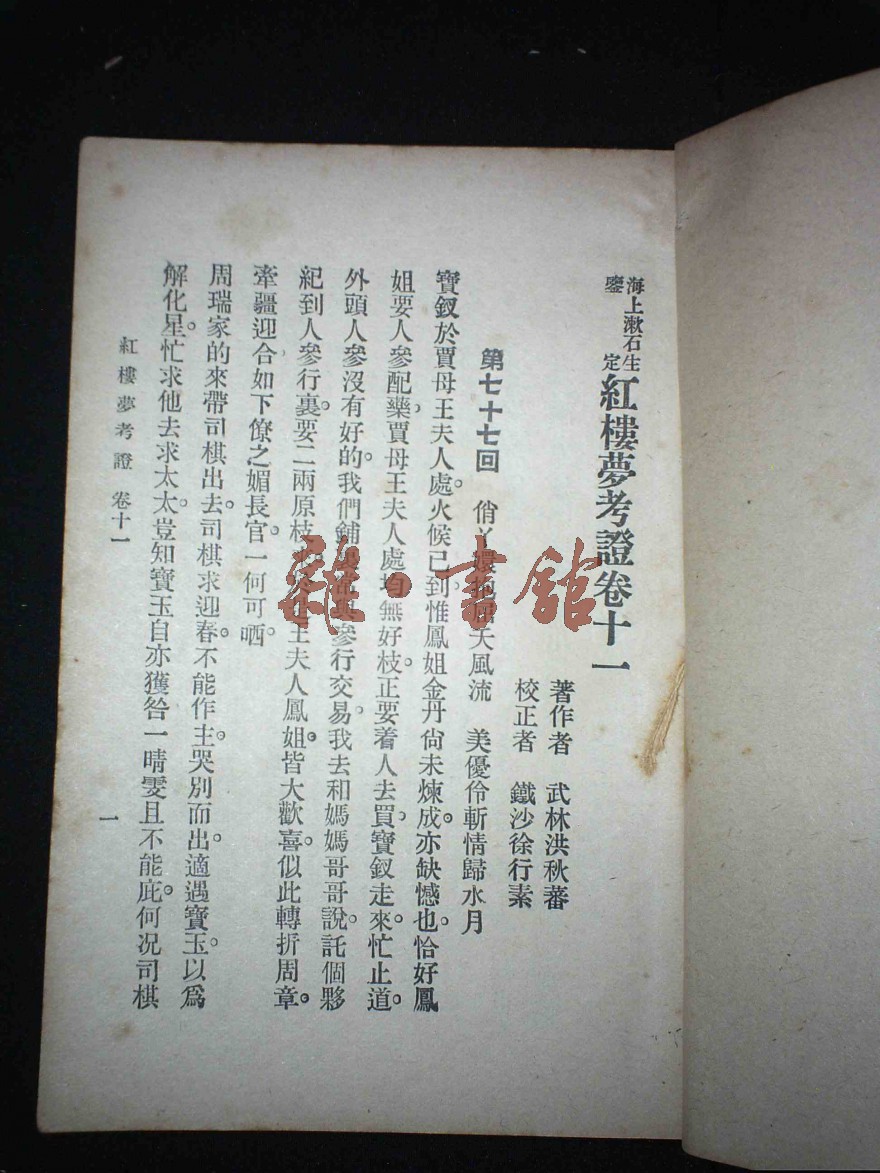 海上漱石生鑒定 紅樓夢考證卷十一
著作者 武林洪秋蕃
校正者 鐵沙徐行素
第七十七回 俏丫 天風流 美優伶斬情歸水月
寶釵於賈母王夫人處。火候已到惟鳳姐金丹尙未煉成。亦缺憾也。恰好鳳
姐要人參配藥。賈母王夫人處均無好枝。正要着人去買。寶釵走來。忙止道。
外頭人參沒有好的。我們鋪 參行交易。我去和媽媽哥哥說。託個夥
紀到人參行裏。要二兩原枝 王夫人鳳姐。皆大歡喜。似此轉折周章。
牽彊迎合如下僚之媚長官。一何可哂。
周瑞家的來帶司棋出去。司棋求迎春。不能作主。哭別而出。適遇寶玉。以爲
解化星。忙求他去求太太。豈知寶玉自亦獲咎一晴雯且不能庇。何况司棋
紅樓夢考證 卷十一
一
雜·書館